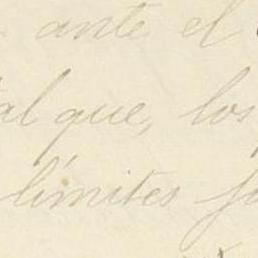 ante el
al que, los
límites